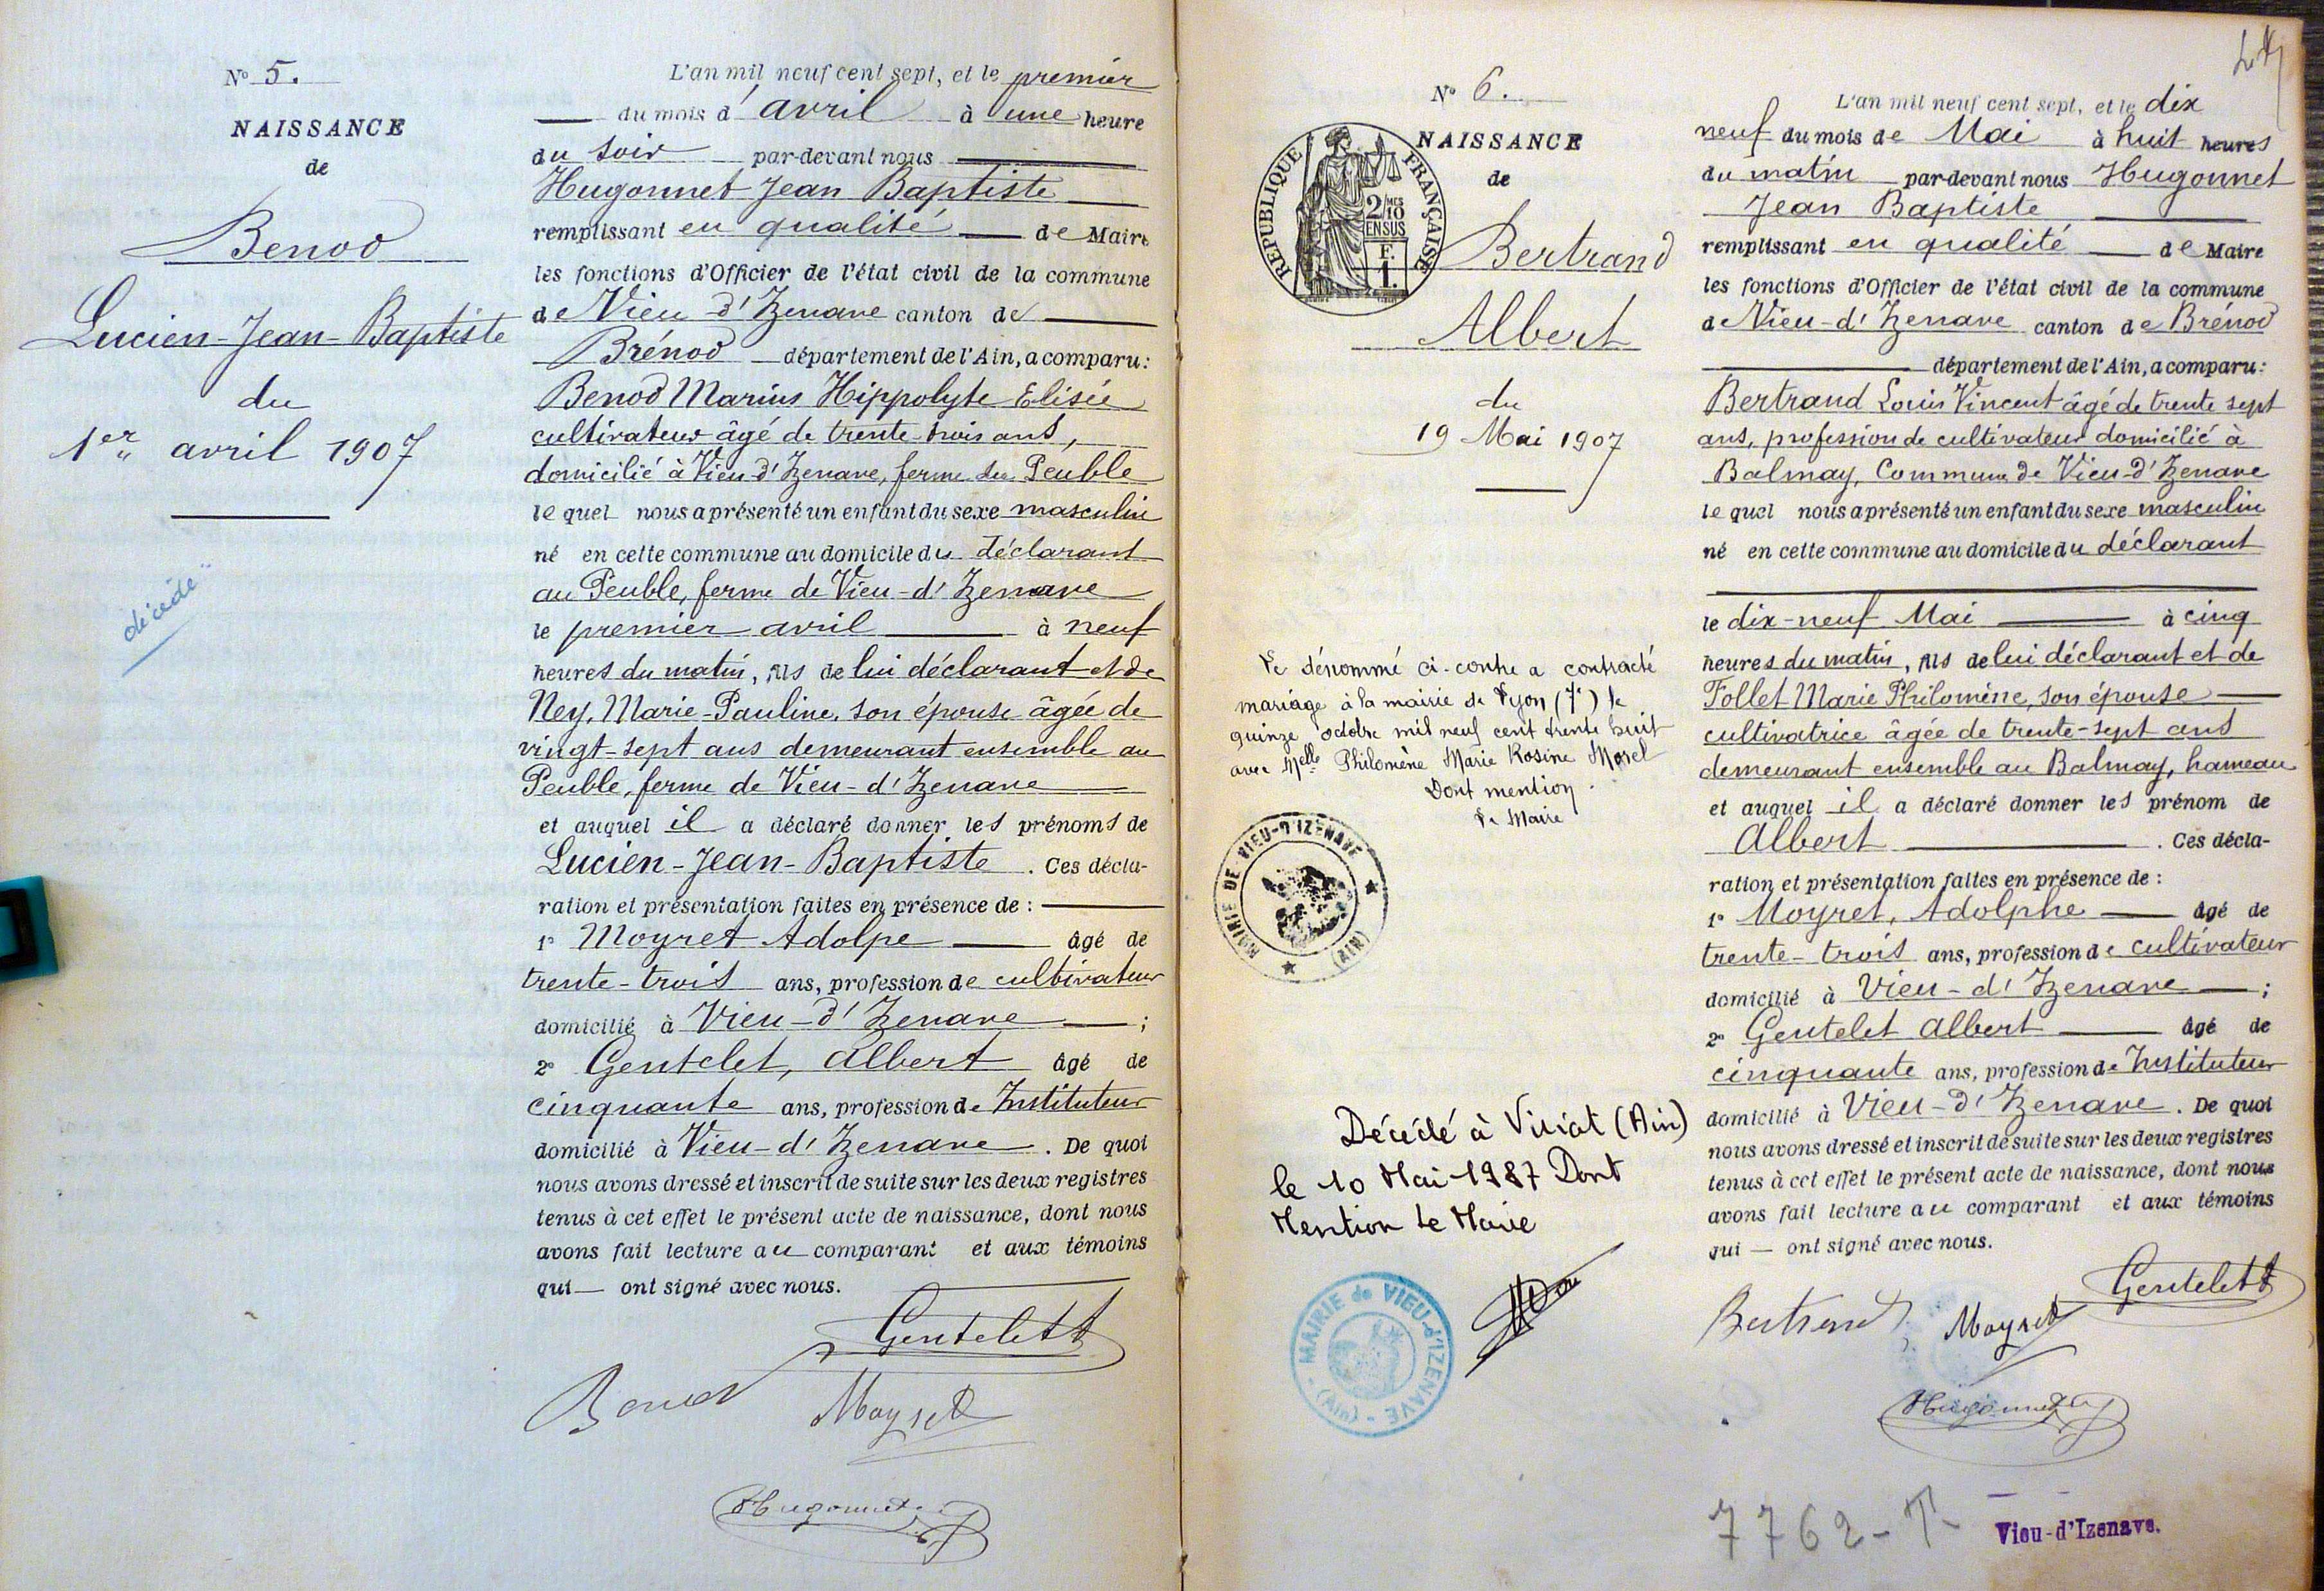 N° 5.
NAISSANCE
de
Benod
Lucien-Jean-Baptiste
du
1er avril 1907
décédé
L'an mil neuf cent sept, et le premier
du mois d'avril à une heure
du soir par-devant nous
Hugonnet Jean Baptiste
remplissant en qualité de Maire
les fonctions d'Officier de l'état civil de la commune
de Vieu-d'Izenave canton de
Brénod département de l'Ain, a comparu:
Benod Marius Hippolyte Elisée
cultivateur âgé de trente-trois ans,
domicilié à Vieu-d'Izenave, ferme du Peuble
lequel nous a présenté un enfant du sexe masculin
né en cette commune au domicile du déclarant
au Peuble, ferme de Vieu-d'Izenave
le premier avril à neuf
heures du matin, fils de lui déclarant et de
Ney, Marie-Pauline, son épouse âgée de
vingt-sept ans demeurant ensemble au
Peuble, ferme de Vieu-d'Izenave
et auquel il a déclaré donner les prénoms de
Lucien-Jean-Baptiste. Ces décla-
ration et présentation faites en présence de:
1° Moyret Adolpe âgé de
trente-trois ans, profession de cultivateur
domicilié à Vieu-d'Izenave;
2° Gentelet, Albert âgé de
cinquante ans, profession de Instituteur
domicilié à Vieu-d'Izenave. De quoi
nous avons dressé et inscrit de suite sur les deux registres
tenus à cet effet le présent acte de naissance, dont nous
avons fait lecture au comparant et aux témoins
qui — ont signé avec nous.
Gentelet
Benod Moyret
Hugonnet
N° 6.
NAISSANCE
de
REPUBLIQUE FRANÇAISE
2/10 MES
EN SUS
F.
1.
Bertrand
Albert
du
19 Mai 1907
Le dénommé ci-contre a contracté
mariage à la mairie de Lyon (7e) le
quinze octobre mil neuf cent trente huit
avec Melle Philomène Marie Rosine Morel
Dont mention.
Le Maire
MAIRIE DE VIEU-D'IZENAVE
(AIN)
Décédé à Viriat (Ain)
le 10 Mai 1987 Dont
Mention Le Maire
MAIRIE de VIEU-d'IZENAVE
(Ain)
L'an mil neuf cent sept, et le dix
neuf du mois de Mai à huit heures
du matin par-devant nous Hugonnet
Jean Baptiste
remplissant en qualité de Maire
les fonctions d'Officier de l'état civil de la commune
de Vieu-d'Izenave canton de Brénod
département de l'Ain, a comparu:
Bertrand Louis Vincent âgé de trente sept
ans, profession de cultivateur domicilié à
Balmay, Commune de Vieu-d'Izenave
lequel nous a présenté un enfant du sexe masculin
né en cette commune au domicile du déclarant
le dix-neuf Mai à cinq
heures du matin, fils de lui déclarant et de
Follet Marie Philomène, son épouse
cultivatrice âgée de trente-sept ans
demeurant ensemble au Balmay, hameau
et auquel il a déclaré donner les prénom de
Albert. Ces décla-
ration et présentation faites en présence de:
1° Moyret, Adolphe âgé de
trente-trois ans, profession de cultivateur
domicilié à Vieu-d'Izenave;
2° Gentelet Albert âgé de
cinquante ans, profession de Instituteur
domicilié à Vieu-d'Izenave. De quoi
nous avons dressé et inscrit de suite sur les deux registres
tenus à cet effet le présent acte de naissance, dont nous
avons fait lecture au comparant et aux témoins
qui — ont signé avec nous.
Gentelet
Bertrand Moyret
Hugonnet
7762-T-
Vieu-d'Izenave.